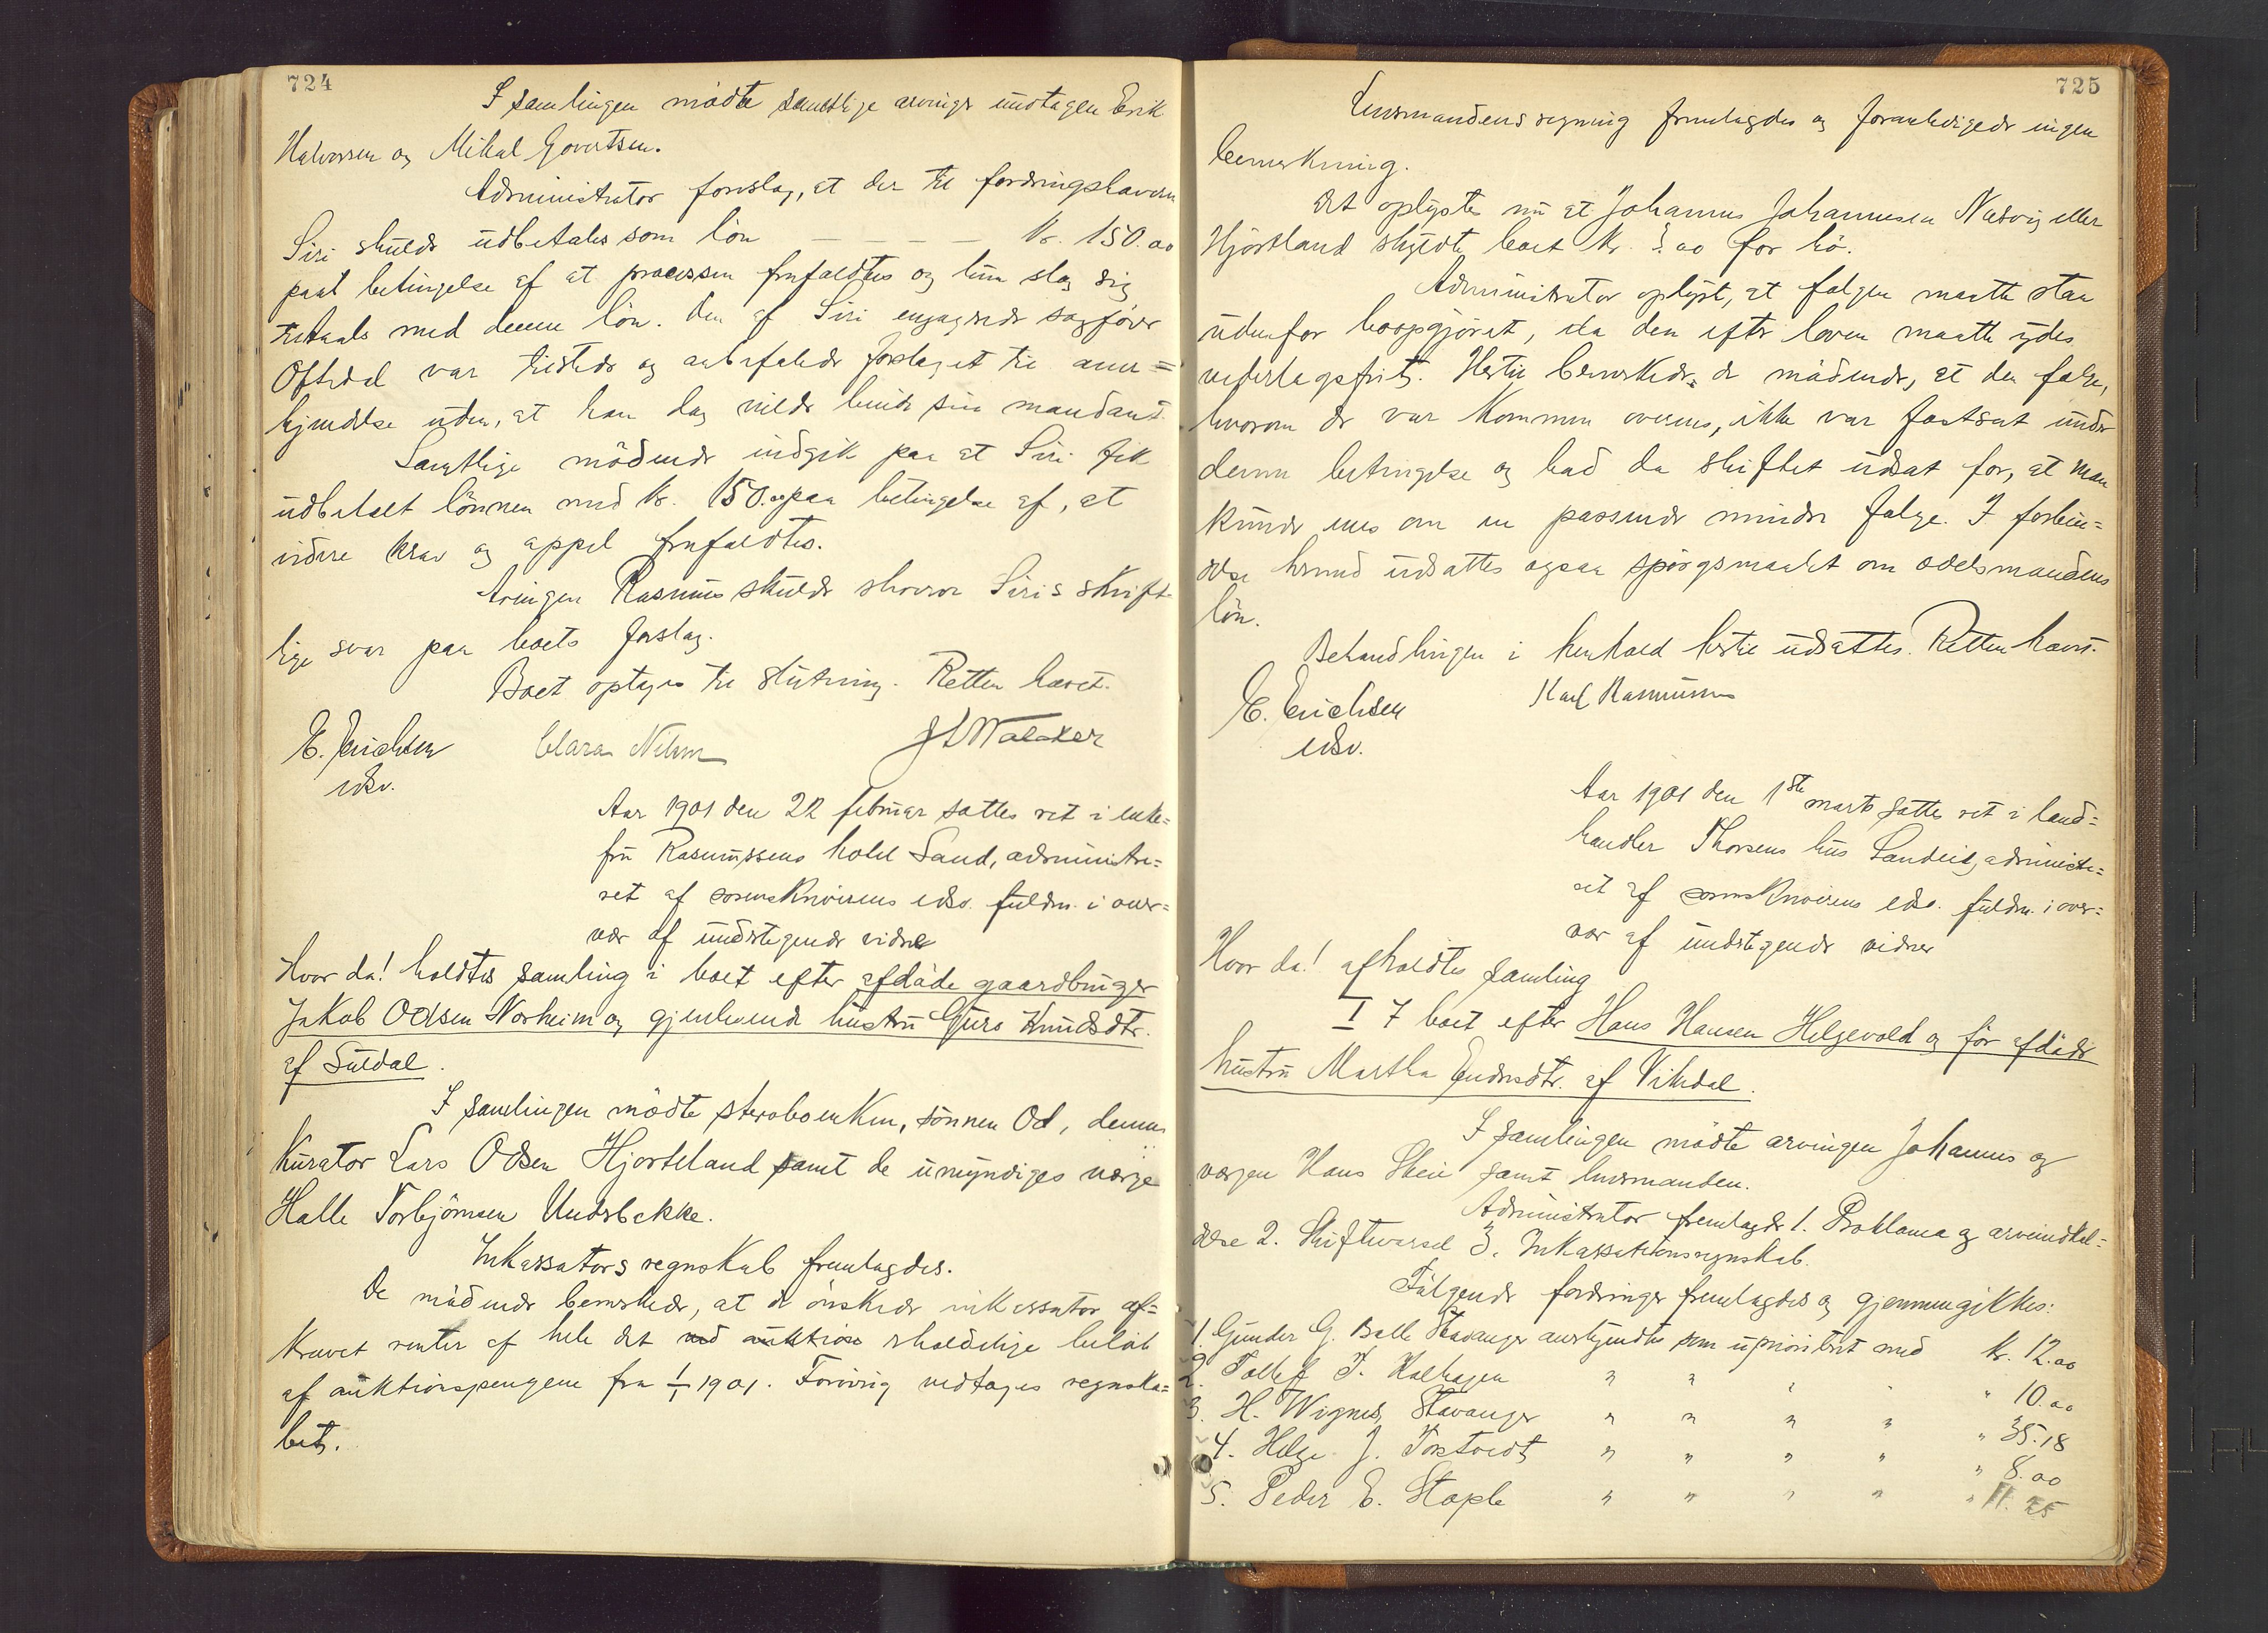 724
I samlingen mødte samtlige arvinge undtagen Erik
Halvorsen og Mikal Govertsen.
Administrator foreslog, at der til fordringshaveren
Siri skulde udbetales som løn — — — — Kr. 150.00
paa betingelse af at processen frafaldtes og hun slog sig
tiltaals med denne løn. Den af Siri engagerede sagfører
Oftedal var tilstede og anbefalede forslaget til aner=
kjendelse uden, at han dog vilde binde sin mandant.
Samtlige mødende indgik paa at Siri fik
udbetalt lønnen med Kr. 150.00 paa betingelse af, at
videre krav og appel frafaldtes.
Arvingen Rasmus skulde skaffe Siris skrift
lige svar paa boets forslag.
Boet optages til slutning. Retten hævet.
E. Erichsen Clara Nilsen J L Walaker
edsv.
Aar 1901 den 22 februar sattes ret i enke=
fru Rasmussens hotel Sand, administre=
ret af sorenskriverens edsv. fuldm. i over=
vær af undertegnede vidner
Hvor da! holdtes samling i boet efter afdøde gaardbruger
Jakob Odsen Norheim og gjenlevende hustru Guro Knudsdtr.
af Suldal.
I samlingen mødte stervboenken, sønnen Od, dennes
kurator Lars Odsen Hjorteland samt de umyndiges værge
Halle Torbjørnsen Underbakke.
Inkassators regnskab fremlagdes.
De mødende bemerkede, at de ønskede inkassator af=
krævet renter af hele det ved auktion skyldige beløb
af auktionspengene fra 1/1 1901. Forøvrig vedtages regnska=
bet.
725
Lensmandens regning fremlagdes og foranledigede ingen
bemerkning.
Det oplystes nu at Johannes Johannesen Nædvig eller
Hjorteland skyldte boet Kr. 3.00 for hø.
Administrator oplyst, at følgen maatte staa
udenfor boopgjøret, da den efter loven maatte ydes
vederlagsfrit. Hertil bemerkede de mødende, at den følge,
hvorom de var kommen overens, ikke var fastsat under
denne betingelse og bad da skiftet udsat for, at man
kunde enes om en passende mindre følge. I forbin=
delse hermed udsattes ogsaa spørgsmaalet om odelsmandens
løn.
Behandlingen i henhold hertil udsattes. Retten hævet.
E. Erichsen Karl Rasmussen
edsv.
Aar 1901 den 1ste marts sattes ret i land=
handler Thorsens hus Sandeid, administre=
ret af sorenskriverens edsv. fuldm. i over=
vær af undertegnede vidner
Hvor da! afholdtes samling
I I boet efter Hans Hansen Helgevold og før afdøde
hustru Martha Endresdtr. af Vikedal.
I samlingen mødte arvingen Johannes og
værgen Hans Skeie samt lensmanden.
Administrator fremlagde 1. Proklama og arveindkal=
delse 2. Skiftevarsel 3. Inkassationsregnskab.
Følgende fordringer fremlagdes og gjennemgikkes:
1. Gunder G. Balle Stavanger anerkjendtes som uprioritert med Kr. 12.00
2. Tollef T. Halhagen " " " " " 10.00
3. H. Wignes, Stavanger " " " " " 35.18
4. Helge J. Torstvedt " " " " " 8.00
5. Peder E. Stople " " " " " 11.25